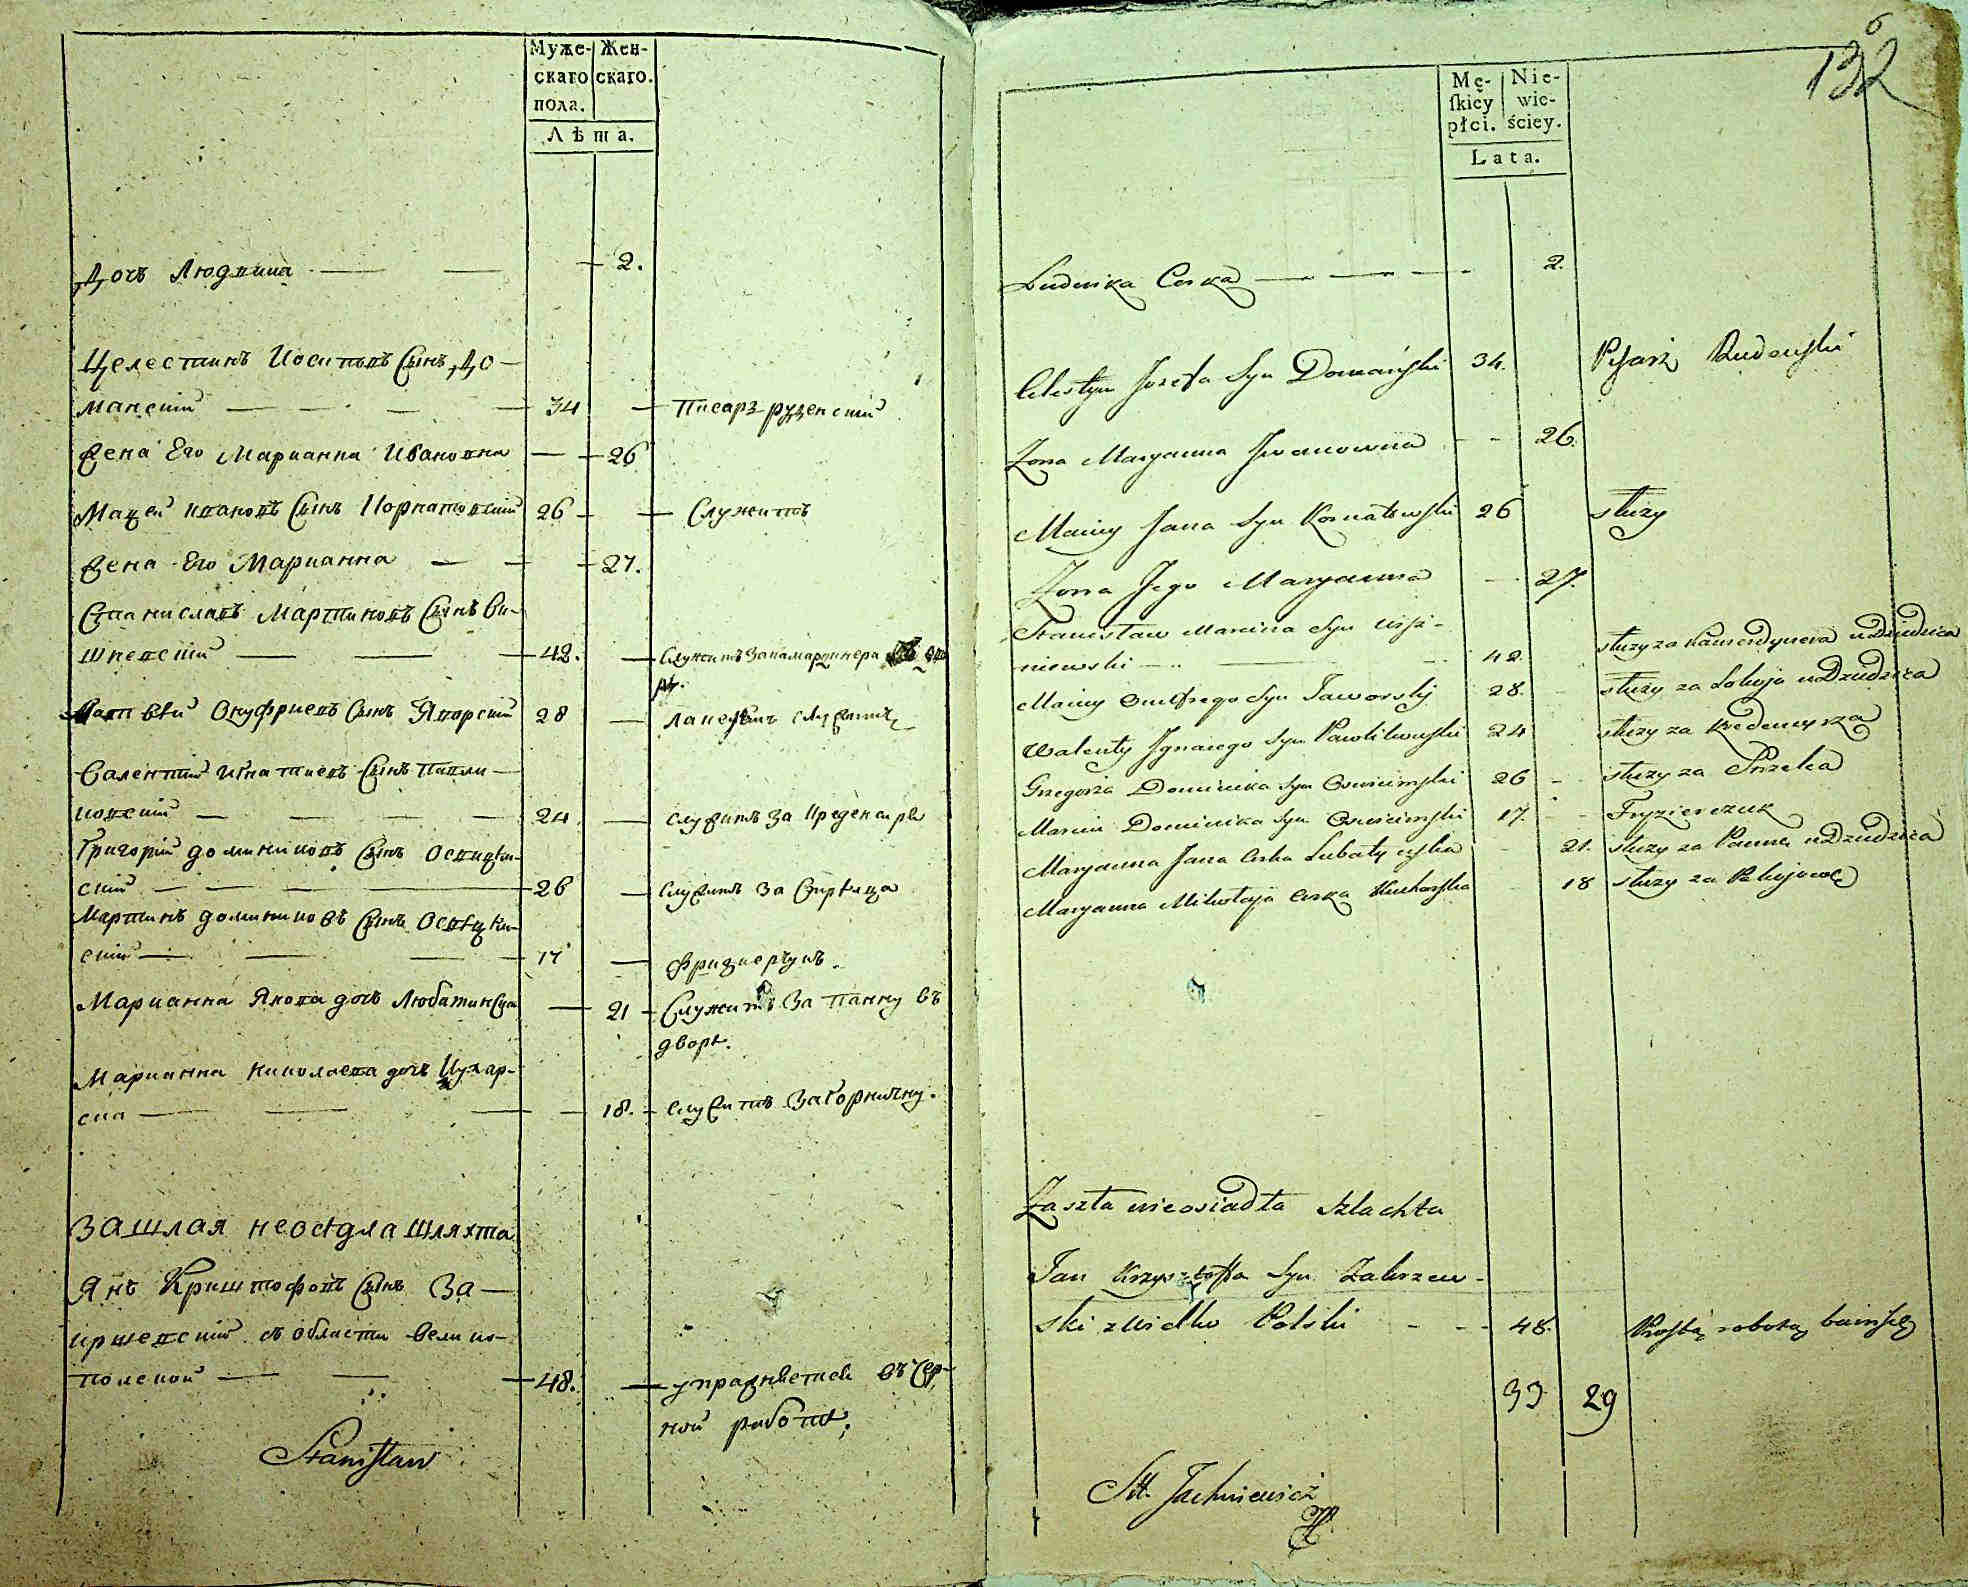 Муже- Жен-
скаго скаго.
пола.
Лѣта.
Дочь Людвика 2.
Целестинъ Иосифовъ Сынъ До-
манскій 34 писарз рудзенскій
Жена Его Марианна Ивановна 26
Мацей ивановъ Сынъ Корнатовскій 26 Служитъ
Жена Его Марианна 27.
Станиславъ Мартиновъ Сынъ Ви-
шневскій 42. Служитъ за камардинера
Матвѣй Онуфриевъ Сынъ Яворскій 28
Валентий игнатиевъ Сынъ Павли-
ковскій 24 служитъ за креденсира
Григорій доминиковъ Сынъ
скій 26 служитъ за Стрѣлца
Мартинъ доминиковъ Сынъ
скій 17 фризиерчукъ.
Марианна Якова дочь Любатинска 21 Служитъ За панну въ
дворѣ.
Марианна николаева дочь Кухар-
ска 18. служитъ За Горничну.
Зашлая неосѣдла шляхта
Янъ Криштофовъ Сынъ За-
кржевскій съ области велико-
полской 48. упражняется въ Чер-
ной работѣ.
Stanisław
6
132
Mę- Nie-
skiey wie-
płci. ściey.
Lata.
Ludwika Corka 2.
Celestyn Jozefa Syn Domański 34. Pisarz Rudzenski
Zona Maryanna Jwanowna 26.
Maciey Jana Syn Kornatowski 26 służy
Zona Jego Maryanna 27.
Stanisław Marcina Syn Wisz-
niewski 42. służy za kamerdynera u Dziedzica
Maciey Onufrego Syn Jaworsky 28. służy za Lokaja u Dziedzica
Walenty Jgnacego Syn Pawlikowski 24 służy za kredencyrza
Grzegorz Dominika Syn 26 służy za Strzelca
Marcin Dominika Syn 17. Fryzierczuk
Maryanna Jana Corka Lubatynska 21. służy za Pannę u Dziedzica
Maryanna Mikołaja Corka Kucharska 18 służy za Pokojowę
Zaszła nieosiadła Szlachta
Jan Krzysztofa Syn Zakrzew-
ski z Wielko Polski 48. Prostą robotą bawiący
33 29
St. Jachniewicz